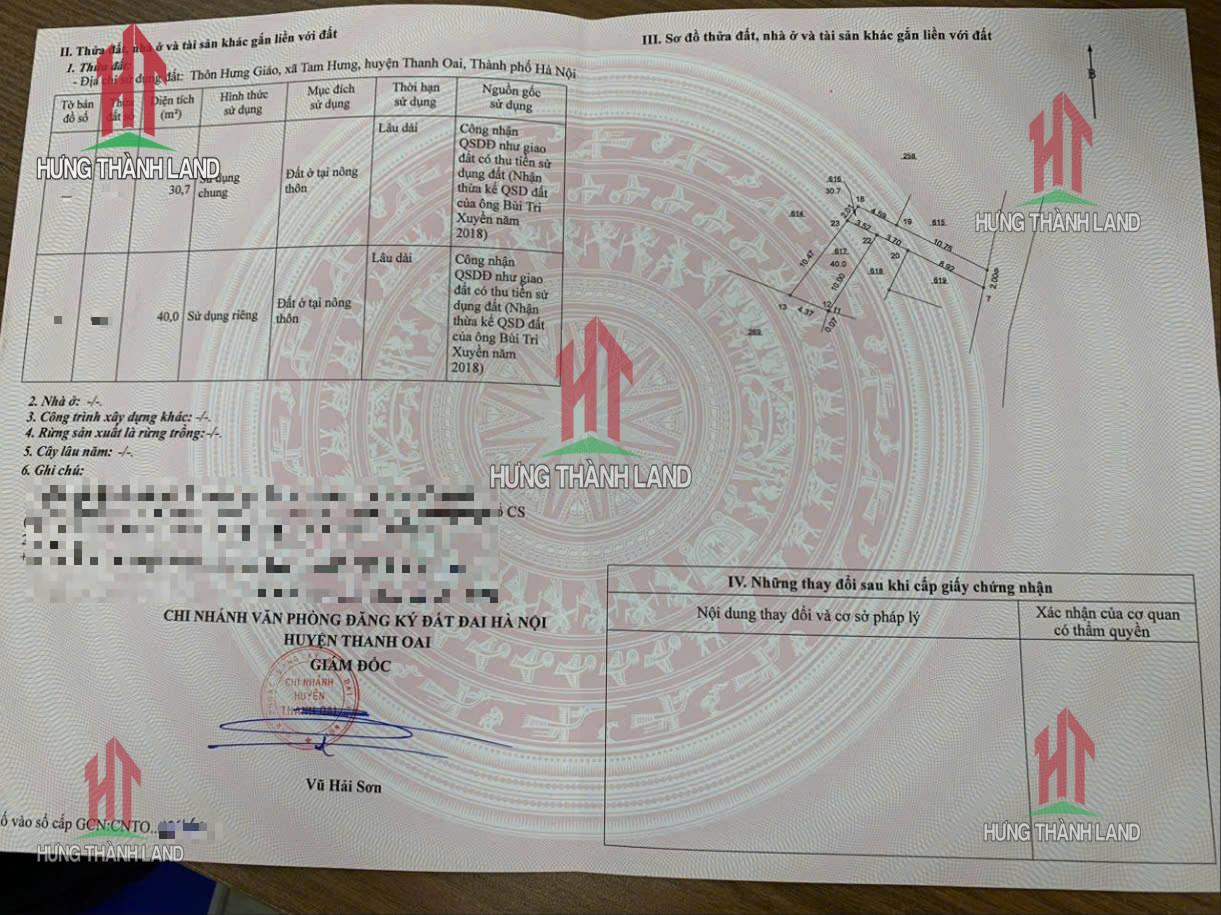 II. Thửa đất, nhà ở và tài sản khác gắn liền với đất
1. Thửa đất:
- Địa chỉ sử dụng đất: Thôn Hưng Giáo, xã Tam Hưng, huyện Thanh Oai, Thành phố Hà Nội
Tờ bản đồ số
Thửa đất số
Diện tích (m²)
Hình thức sử dụng
Mục đích sử dụng
Thời hạn sử dụng
Nguồn gốc sử dụng
30,7
Sử dụng chung
Đất ở tại nông thôn
Lâu dài
Công nhận
QSDĐ như giao
đất có thu tiền sử
dụng đất (Nhận
thừa kế QSD đất
của ông Bùi Tri
Xuyền năm
2018)
40,0
Sử dụng riêng
Đất ở tại nông thôn
Lâu dài
Công nhận
QSDĐ như giao
đất có thu tiền sử
dụng đất (Nhận
thừa kế QSD đất
của ông Bùi Tri
Xuyền năm
2018)
2. Nhà ở: -/-.
3. Công trình xây dựng khác: -/-.
4. Rừng sản xuất là rừng trồng:-/-.
5. Cây lâu năm: -/-.
6. Ghi chú:
CS
CHI NHÁNH VĂN PHÒNG ĐĂNG KÝ ĐẤT ĐAI HÀ NỘI
HUYỆN THANH OAI
GIÁM ĐỐC
CHI NHÁNH
HUYỆN
THANH OAI
Vũ Hải Sơn
ố vào sổ cấp GCN:CNTO..
III. Sơ đồ thửa đất, nhà ở và tài sản khác gắn liền với đất
B
258
616
30.7
614
18
2.01
4.59
19
615
23
3.52
22
3.70
20
10.75
8.92
2.00
617
40.0
618
619
10.47
10.00
13
4.37
12
11
0.07
7
IV. Những thay đổi sau khi cấp giấy chứng nhận
Nội dung thay đổi và cơ sở pháp lý
Xác nhận của cơ quan
có thẩm quyền
HƯNG THÀNH LAND
HƯNG THÀNH LAND
HƯNG THÀNH LAND
HƯNG THÀNH LAND
HƯNG THÀNH LAND